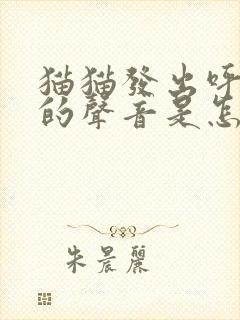 猫猫發出呼
的聲音是怎
朱晨麗